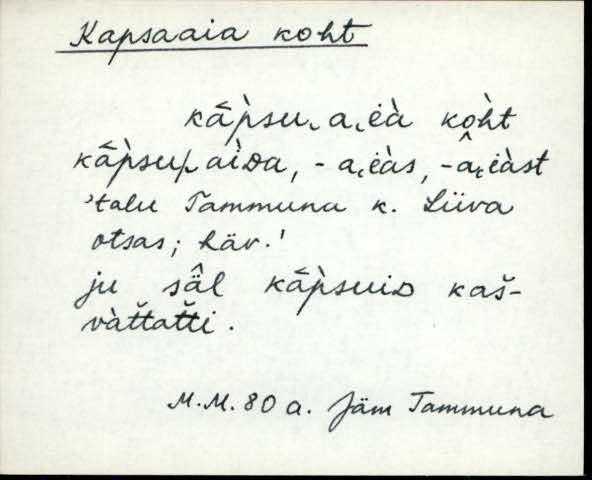 Kapsaaia koht
kâp̀su‿a‿ëà koh̀t
kâp̀su‿aìDa, -a‿ëàs, -â‿ëàst
'talu Tammuna k. Liiva
otsas; häv.'
ju sâ̈l kâp̀suiD kaš-
vàt̆tat̆ti.
M.M. 80 a. Jäm Tammuna